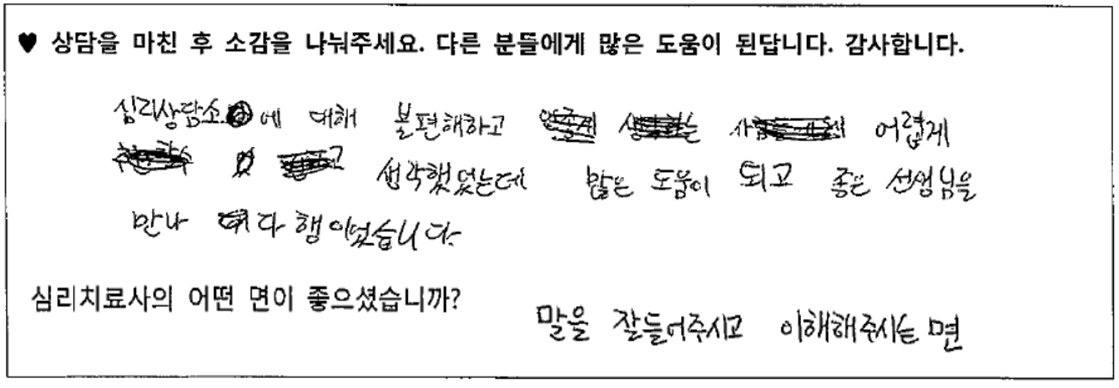 ♥ 상담을 마친 후 소감을 나눠주세요. 다른 분들에게 많은 도움이 된답니다. 감사합니다.
심리상담소에 대해 불편해하고 어렵게
생각했었는데 많은 도움이 되고 좋은 선생님을
만나 다행이었습니다.
심리치료사의 어떤 면이 좋으셨습니까?
말을 잘들어주시고 이해해주시는 면